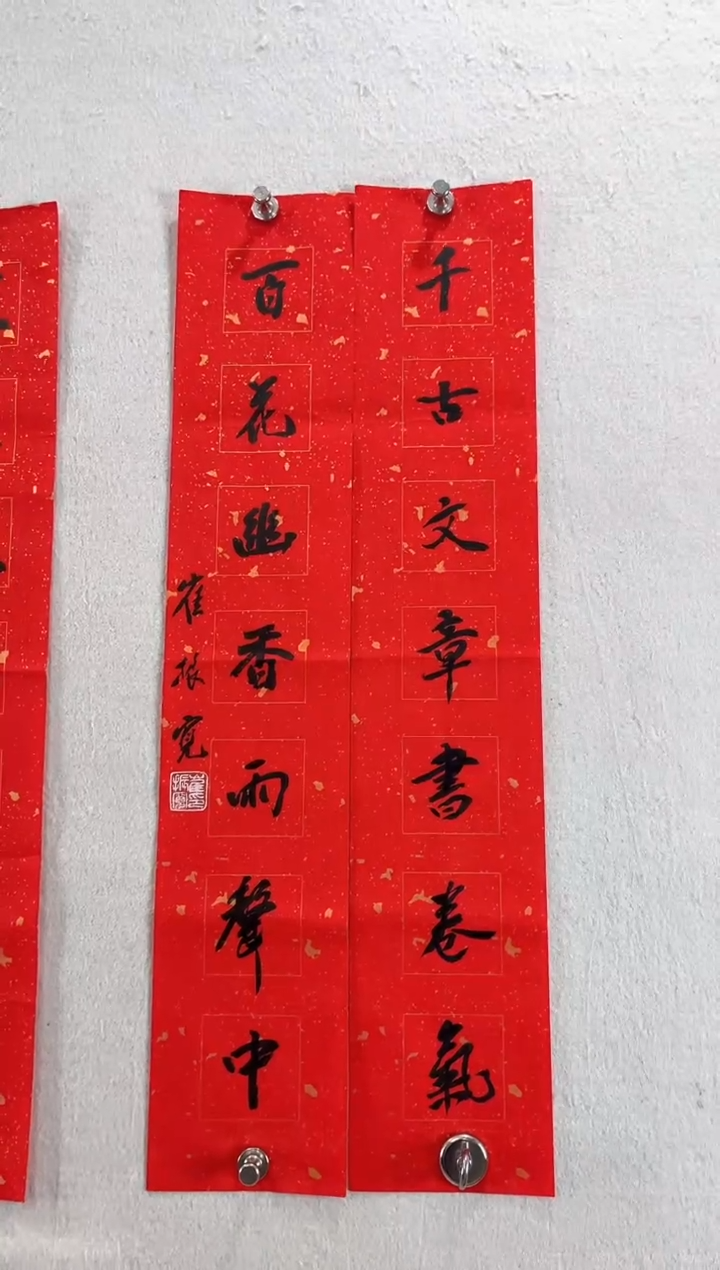 千古文章書卷氣
百花幽香雨聲中
崔振寬